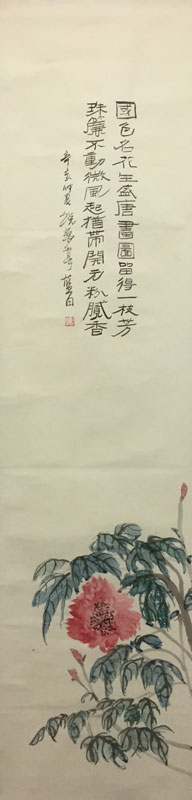 國色名花生盛唐畫圖留得一枝芳
珠簾不動微風起猶帶開元粉膩香
辛亥仲夏